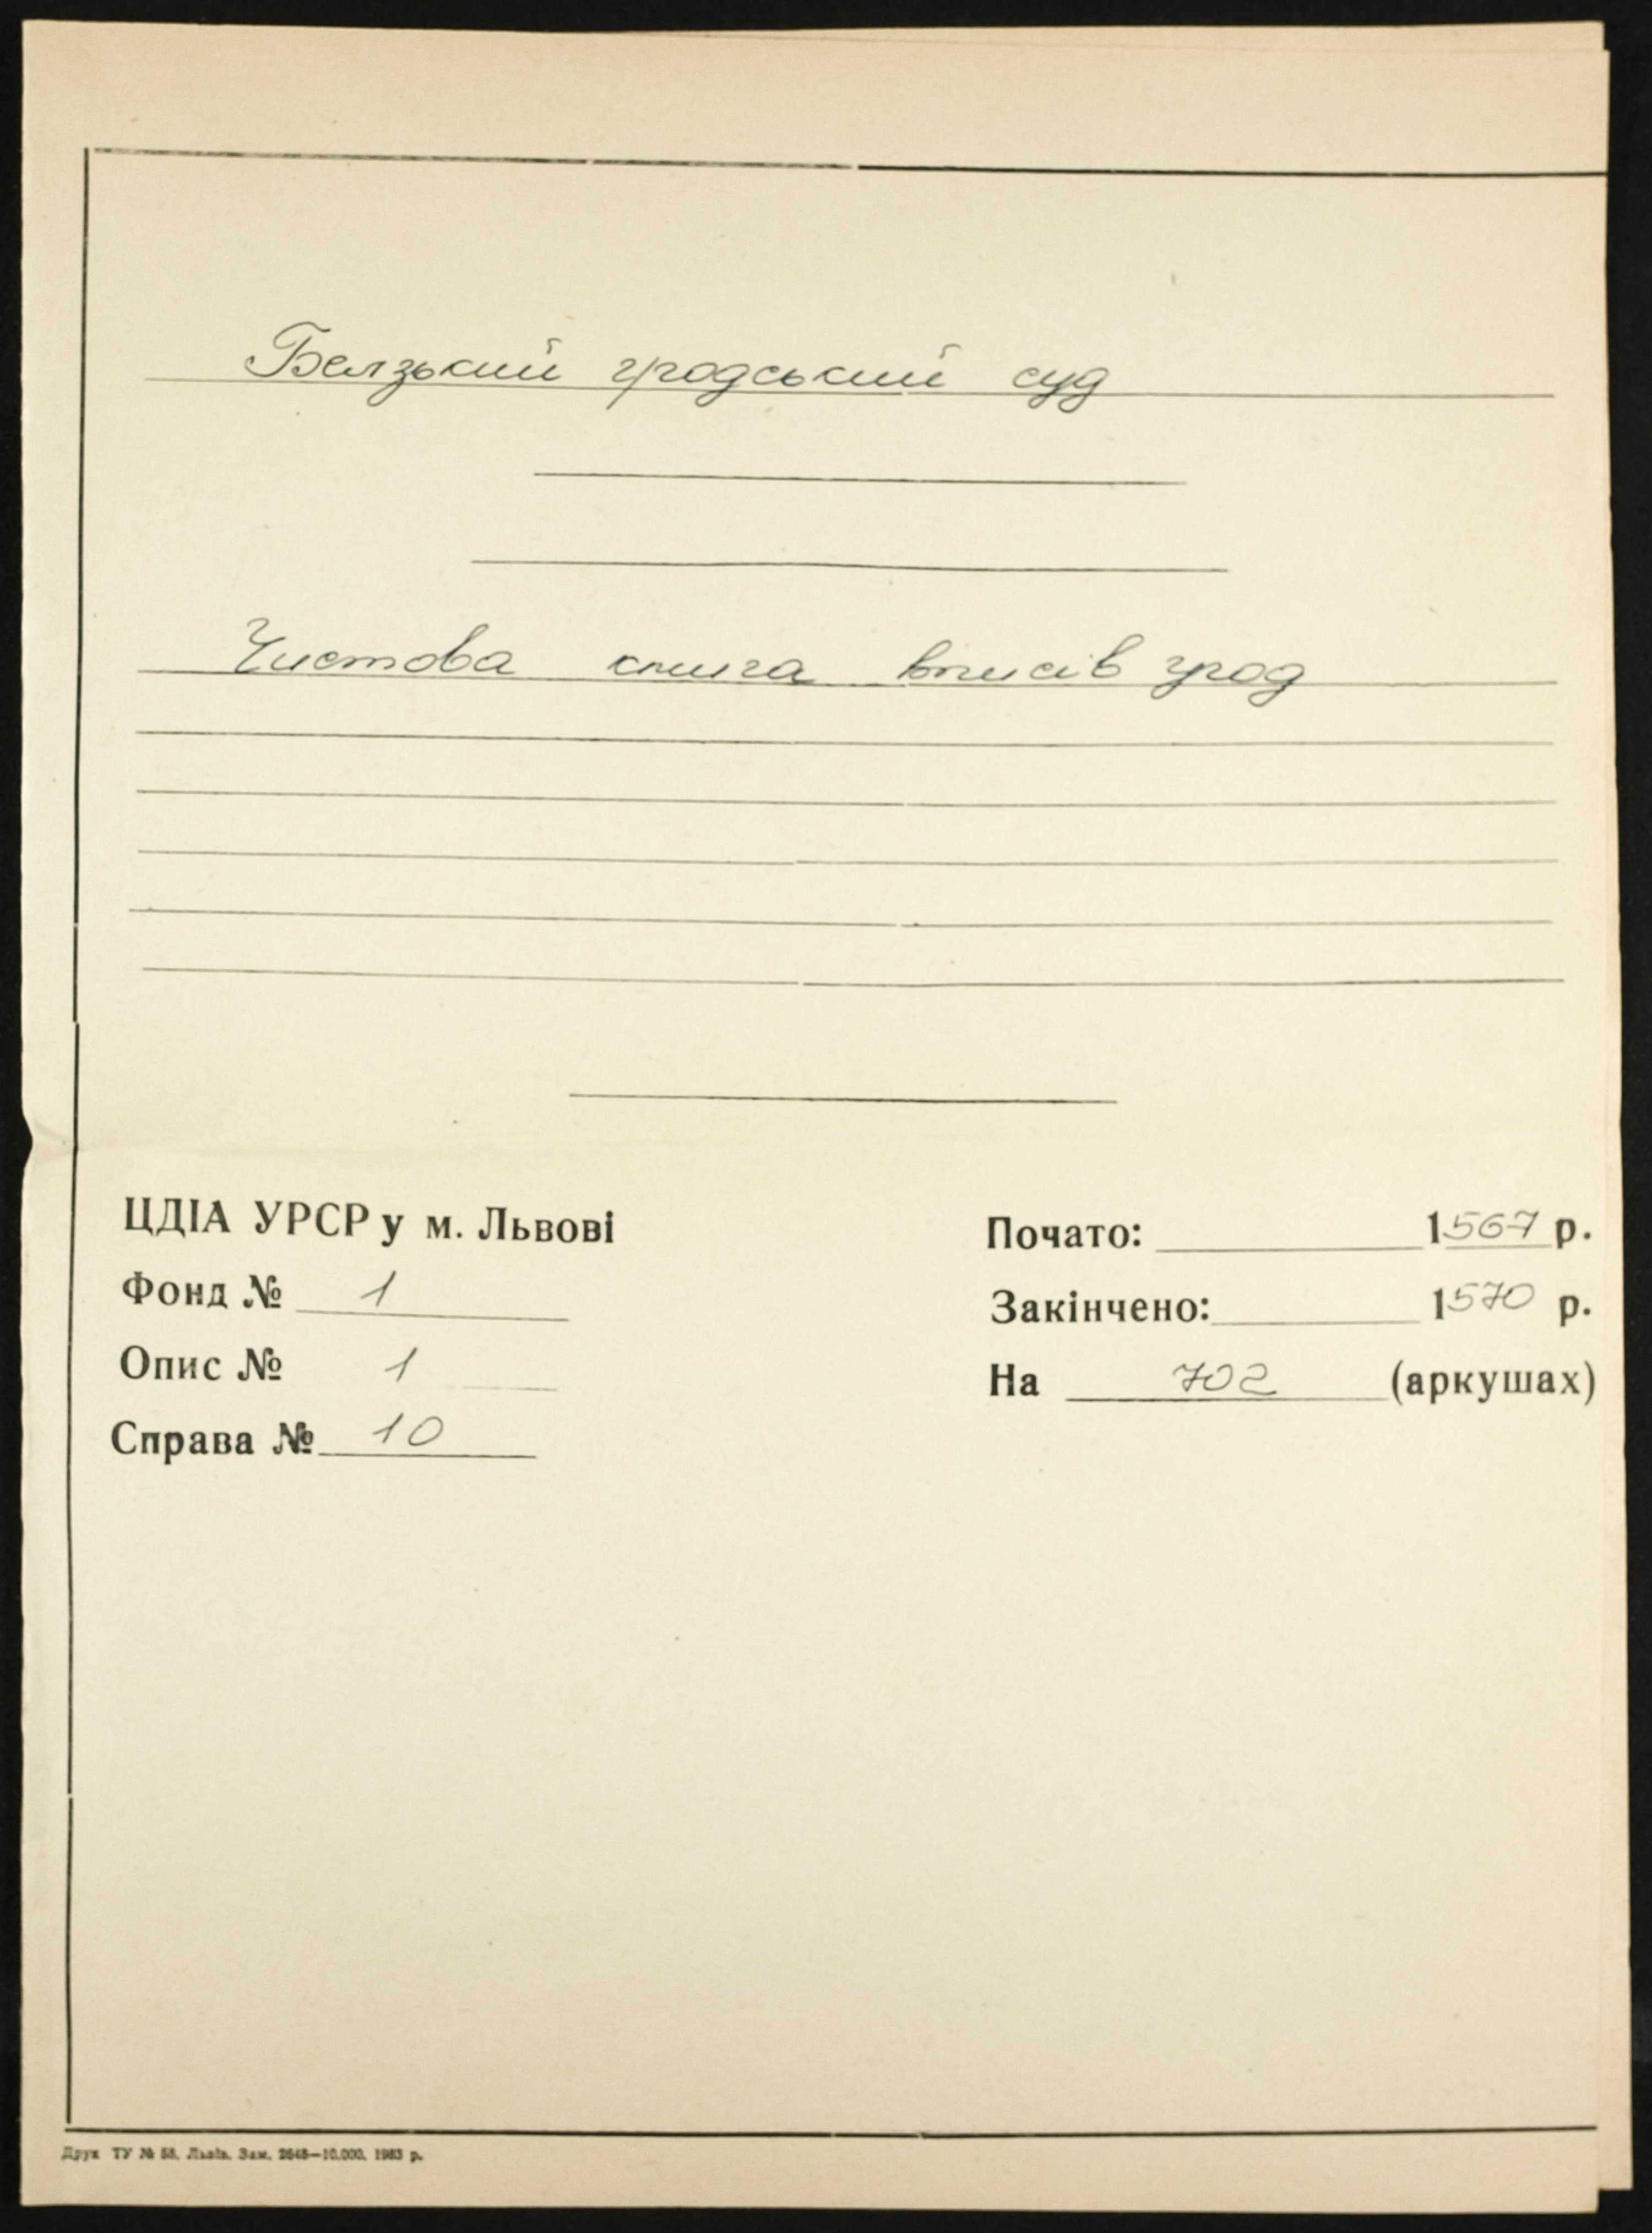 Белзький гродський суд
Чистова книга вписів грод
ЦДІА УРСР у м. Львові
Фонд № 1
Опис № 1
Справа № 10
Почато: 1567 р.
Закінчено: 1570 р.
На 702 (аркушах)
Друк ТУ № 58. Львів. Зам. 2645—10.000. 1963 р.